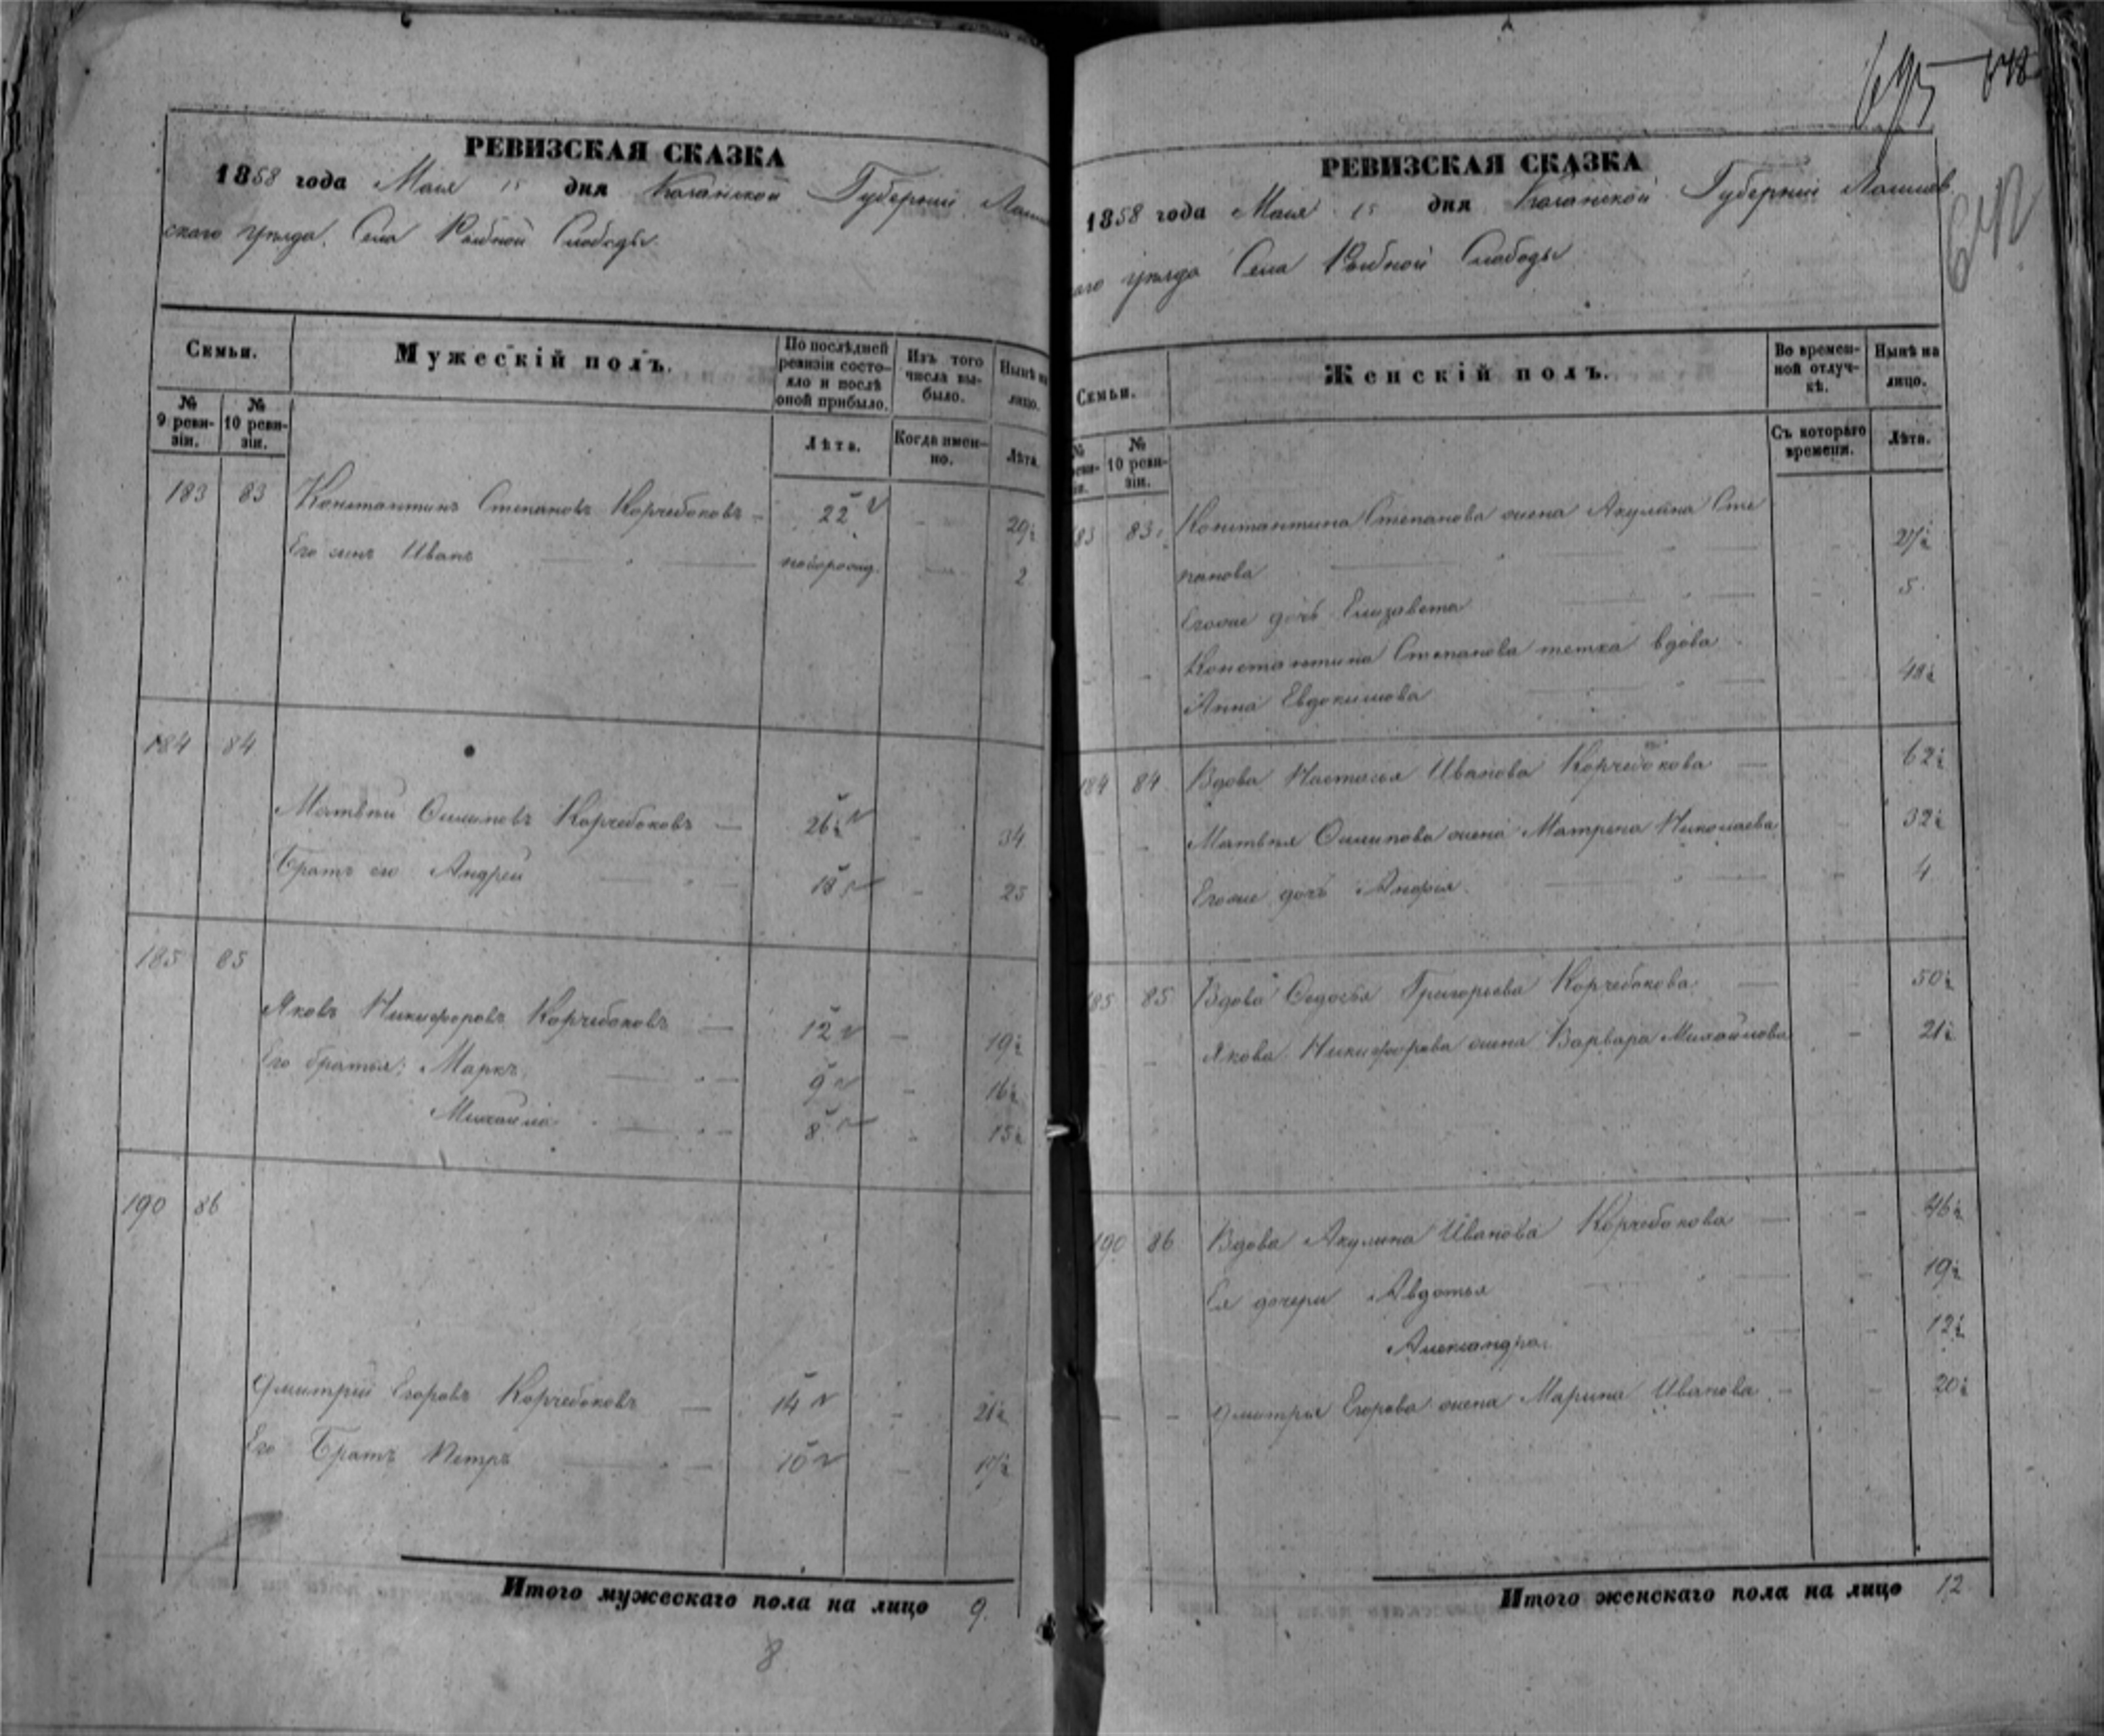 РЕВИЗСКАЯ СКАЗКА
1858 года Мая 15 дня Казанской Губерніи Лаиш
скаго уѣзда. Села Рыбной Слободы.
Семьи.
Мужескій полъ.
По послѣдней ревизіи состояло и послѣ оной прибыло.
Изъ того числа выбыло.
Нынѣ на лицо.
№ 9 реви-зіи.
№ 10 реви-зіи.
Лѣта.
Когда имен-но.
Лѣта.
183 83 Константинъ Степановъ Корчебоковъ 22 29½
Его сынъ Иванъ новорожд. 2
184 84
Матвѣй Осиповъ Корчебоковъ 26½ 34
Братъ его Андрей 18 25
185 85
Яковъ Никифоровъ Корчебоковъ 12 19½
Его братья: Маркъ 9 16½
Михайла 8 15½
190 86
Дмитрій Егоровъ Корчебоковъ 14 21½
Его Братъ Петръ 10 17½
Итого мужескаго пола на лицо 9.
8
695
РЕВИЗСКАЯ СКАЗКА
1858 года Мая 15 дня Казанской Губерніи Лаишев
аго уѣзда Села Рыбной Слободы
Семьи.
Женскій полъ.
Во времен-ной отлуч-кѣ.
Нынѣ на лицо.
№ 10 реви-зіи.
Съ котораго времени.
Лѣта.
83 83 Константина Степанова жена Акулина Сте
панова 27½
Егоже дочь Елизавета 5
Константина Степанова тетка вдова
Анна Евдокимова 48½
184 84 Вдова Настасья Иванова Корчебокова 62½
Матвѣя Осипова жена Матрена Николаева 32½
Егоже дочь 4
85 85 Вдова Федосья Григорьева Корчебокова 50½
Якова Никифорова жена Варвара Михайлова 21½
190 86 Вдова Акулина Иванова Корчебокова 46½
Ея дочери Авдотья 19½
Александра 12½
Дмитрія Егорова жена Марина Иванова 20½
Итого женскаго пола на лицо 12